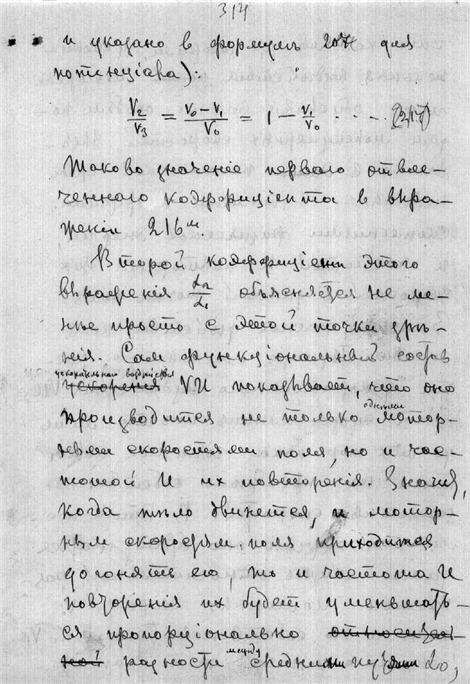 314
и указано в формулѣ 207й для
потенціала):
V₂/V₃ = (V₀ – V₁)/V₀ = 1 – V₁/V₀ · · · · (217)
Таково значеніе перваго отвле-
ченнаго коэффиціента в выра-
женіи 216м.
Второй коэффиціент этого
выраженія L₂/L₁ объясняется не ме-
нѣе просто с этой точки зрѣ-
нія. Сам функціональный состав
ускорительнаго
ускоренія VИ показывает, что оно
одними
производится не только мотор-
ными скоростями поля, но и час-
тотой И их повторенія. Значит,
когда тѣло движется, и мотор-
ным скоростям поля приходится
догонять его, то и частота И
повторенія их будет уменьшать-
ся пропорціонально
между
разности средними L₀,